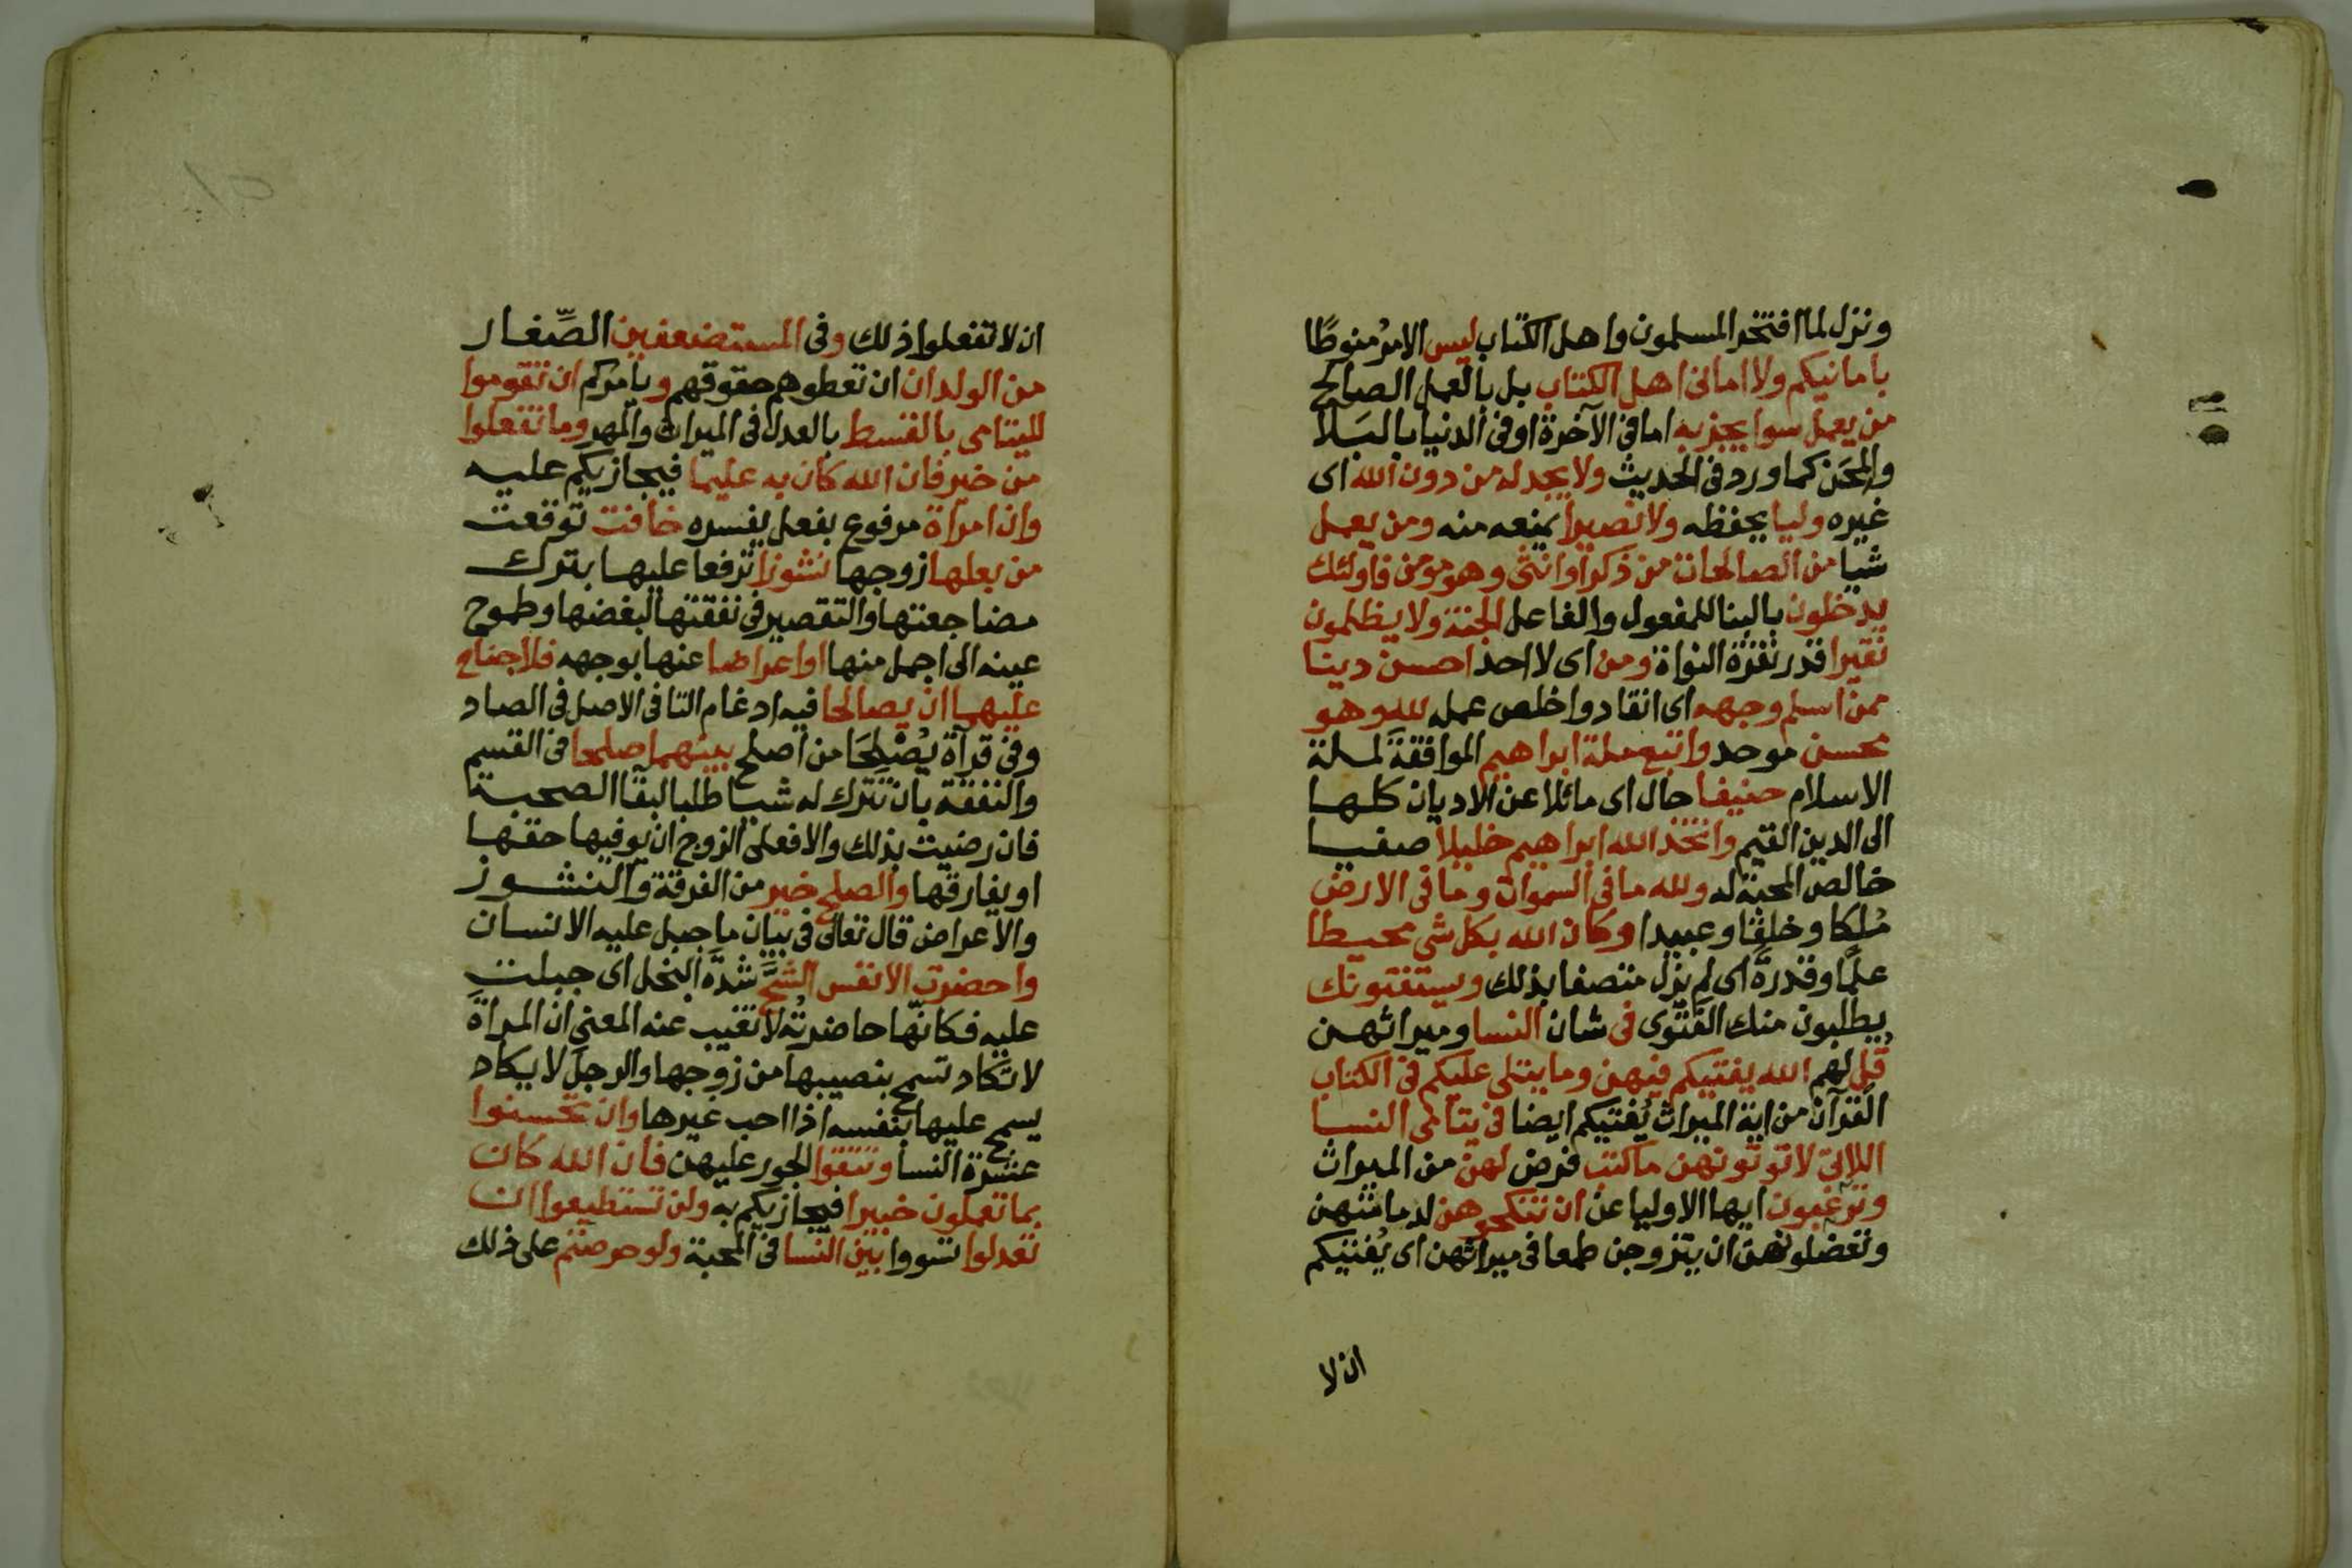 ونزل لما افتخر المسلمون واهل الكتاب ليس الامرُ منوطًا
بامانيكم ولا امانى اهل الكتاب بل بالعمل الصالح
من يعمل سوا يجز به اما فى الآخرة او فى الدنيا بالبَلا
والمِحَن كما ورد فى الحديث ولا يجد له من دون الله اى
غيره وليا يحفظه ولا نصيرا يمنعه منه ومن يعمل
شيا من الصالحات من ذكر او انثى وهو مؤمن فاولئك
يدخلون بالبنا للمفعول والفاعل الجنة ولا يظلمون
نقيرا قدر نقرة النواة ومن اى لا احد احسن دينا
ممن اسلم وجهه اى انقاد واخلص عمله لله وهو
محسن موحد واتبع ملة ابراهيم الموافقة لملة
الاسلام حنيفا حال اى مائلا عن الاديان كلها
الى الدين القيم واتخذ الله ابراهيم خليلا صفيا
خالص المحبة له ولله ما فى السموات وما فى الارض
مُلكا وخلقا وعبيدا وكان الله بكل شى محيطا
علمًا وقدرة اى لم يزل متصفا بذلك ويستفتونك
يطلبون منك الفَتْوى فى شان النسا وميراثهن
قُل لهم الله يفتيكم فيهن وما يتلى عليكم فى الكتاب
القرآن من اية الميراث يُفتيكم ايضا فى يتامى النسا
اللاتى لا توتونهن ما كتب فرض لهن من الميراث
وترغبون ايها الاوليا عن ان تنكحوهن لدمامتهن
وتعضلوهن ان يتزوجن طمعا فى ميراثهن اى يُفتيكم
ان لا
ان لا تفعلوا ذلك وفى المستضعفين الصِّغار
من الولدان ان تعطوهم حقوقهم ويامركم ان تقوموا
لليتامى بالقسط بالعدل فى الميراث والمهر وما تفعلوا
من خير فان الله كان به عليما فيجازيكم عليه
وان امراة مرفوع بفعل يفسره خافت توقعت
من بعلها زوجها نشوزا ترفعا عليها بترك
مضاجعتها والتقصير فى نفقتها لبغضها وطموح
عينه الى اجمل منها او اعراضا عنها بوجهه فلا جناح
عليهما ان يصالحا فيه ادغام التا فى الاصل فى الصاد
وفى قرآة يُصْلِحَا من اصلح بينهما صلحا فى القسم
والنفقة بان تترك له شيا طلبا لبقا الصحبة
فان رضيت بذلك والا فعلى الزوج ان يوفيها حقها
او يفارقها والصلح خير من الفرقة والنشوز
والاعراض قال تعالى فى بيان ما جبل عليه الانسان
واحضرت الانفس الشُّحَّ شدّة البخل اى جبلت
عليه فكانّها حاضرتُه لا تغيب عنه المعنى ان المراة
لا تكاد تسمح بنصيبها من زوجها والرجل لا يكاد
يسمح عليها بنفسه اذا احب غيرها وان تحسنوا
عشرة النسا وتتقوا الجور عليهن فان الله كان
بما تعملون خبيرا فيجازيكم به ولن تستطيعوا ان
تعدلوا تسووا بين النسا فى المحبة ولو حرصتم على ذلك